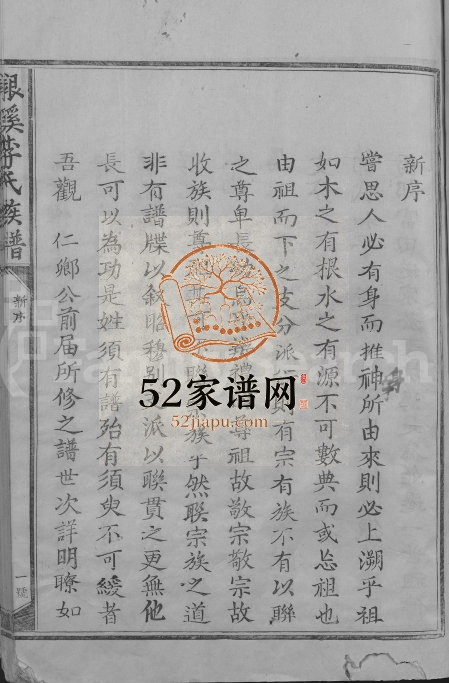 新序
嘗思人必有身而推神所由來則必上溯乎祖
如木之有根水之有源不可數典而或忘祖也
由祖而下之支分派有宗有族不有以聯
之尊卑長禮尊祖故敬宗敬宗故
收族則尊族乎然聯宗族之道
非有譜牒以敘昭穆別派以聯貫之更無他
長可以為功是姓須有譜殆有須臾不可緩者
吾觀 仁鄉公前届所修之譜世次詳明瞭如
溪李氏族譜
新序
一號
52家谱网
52jiapu.com